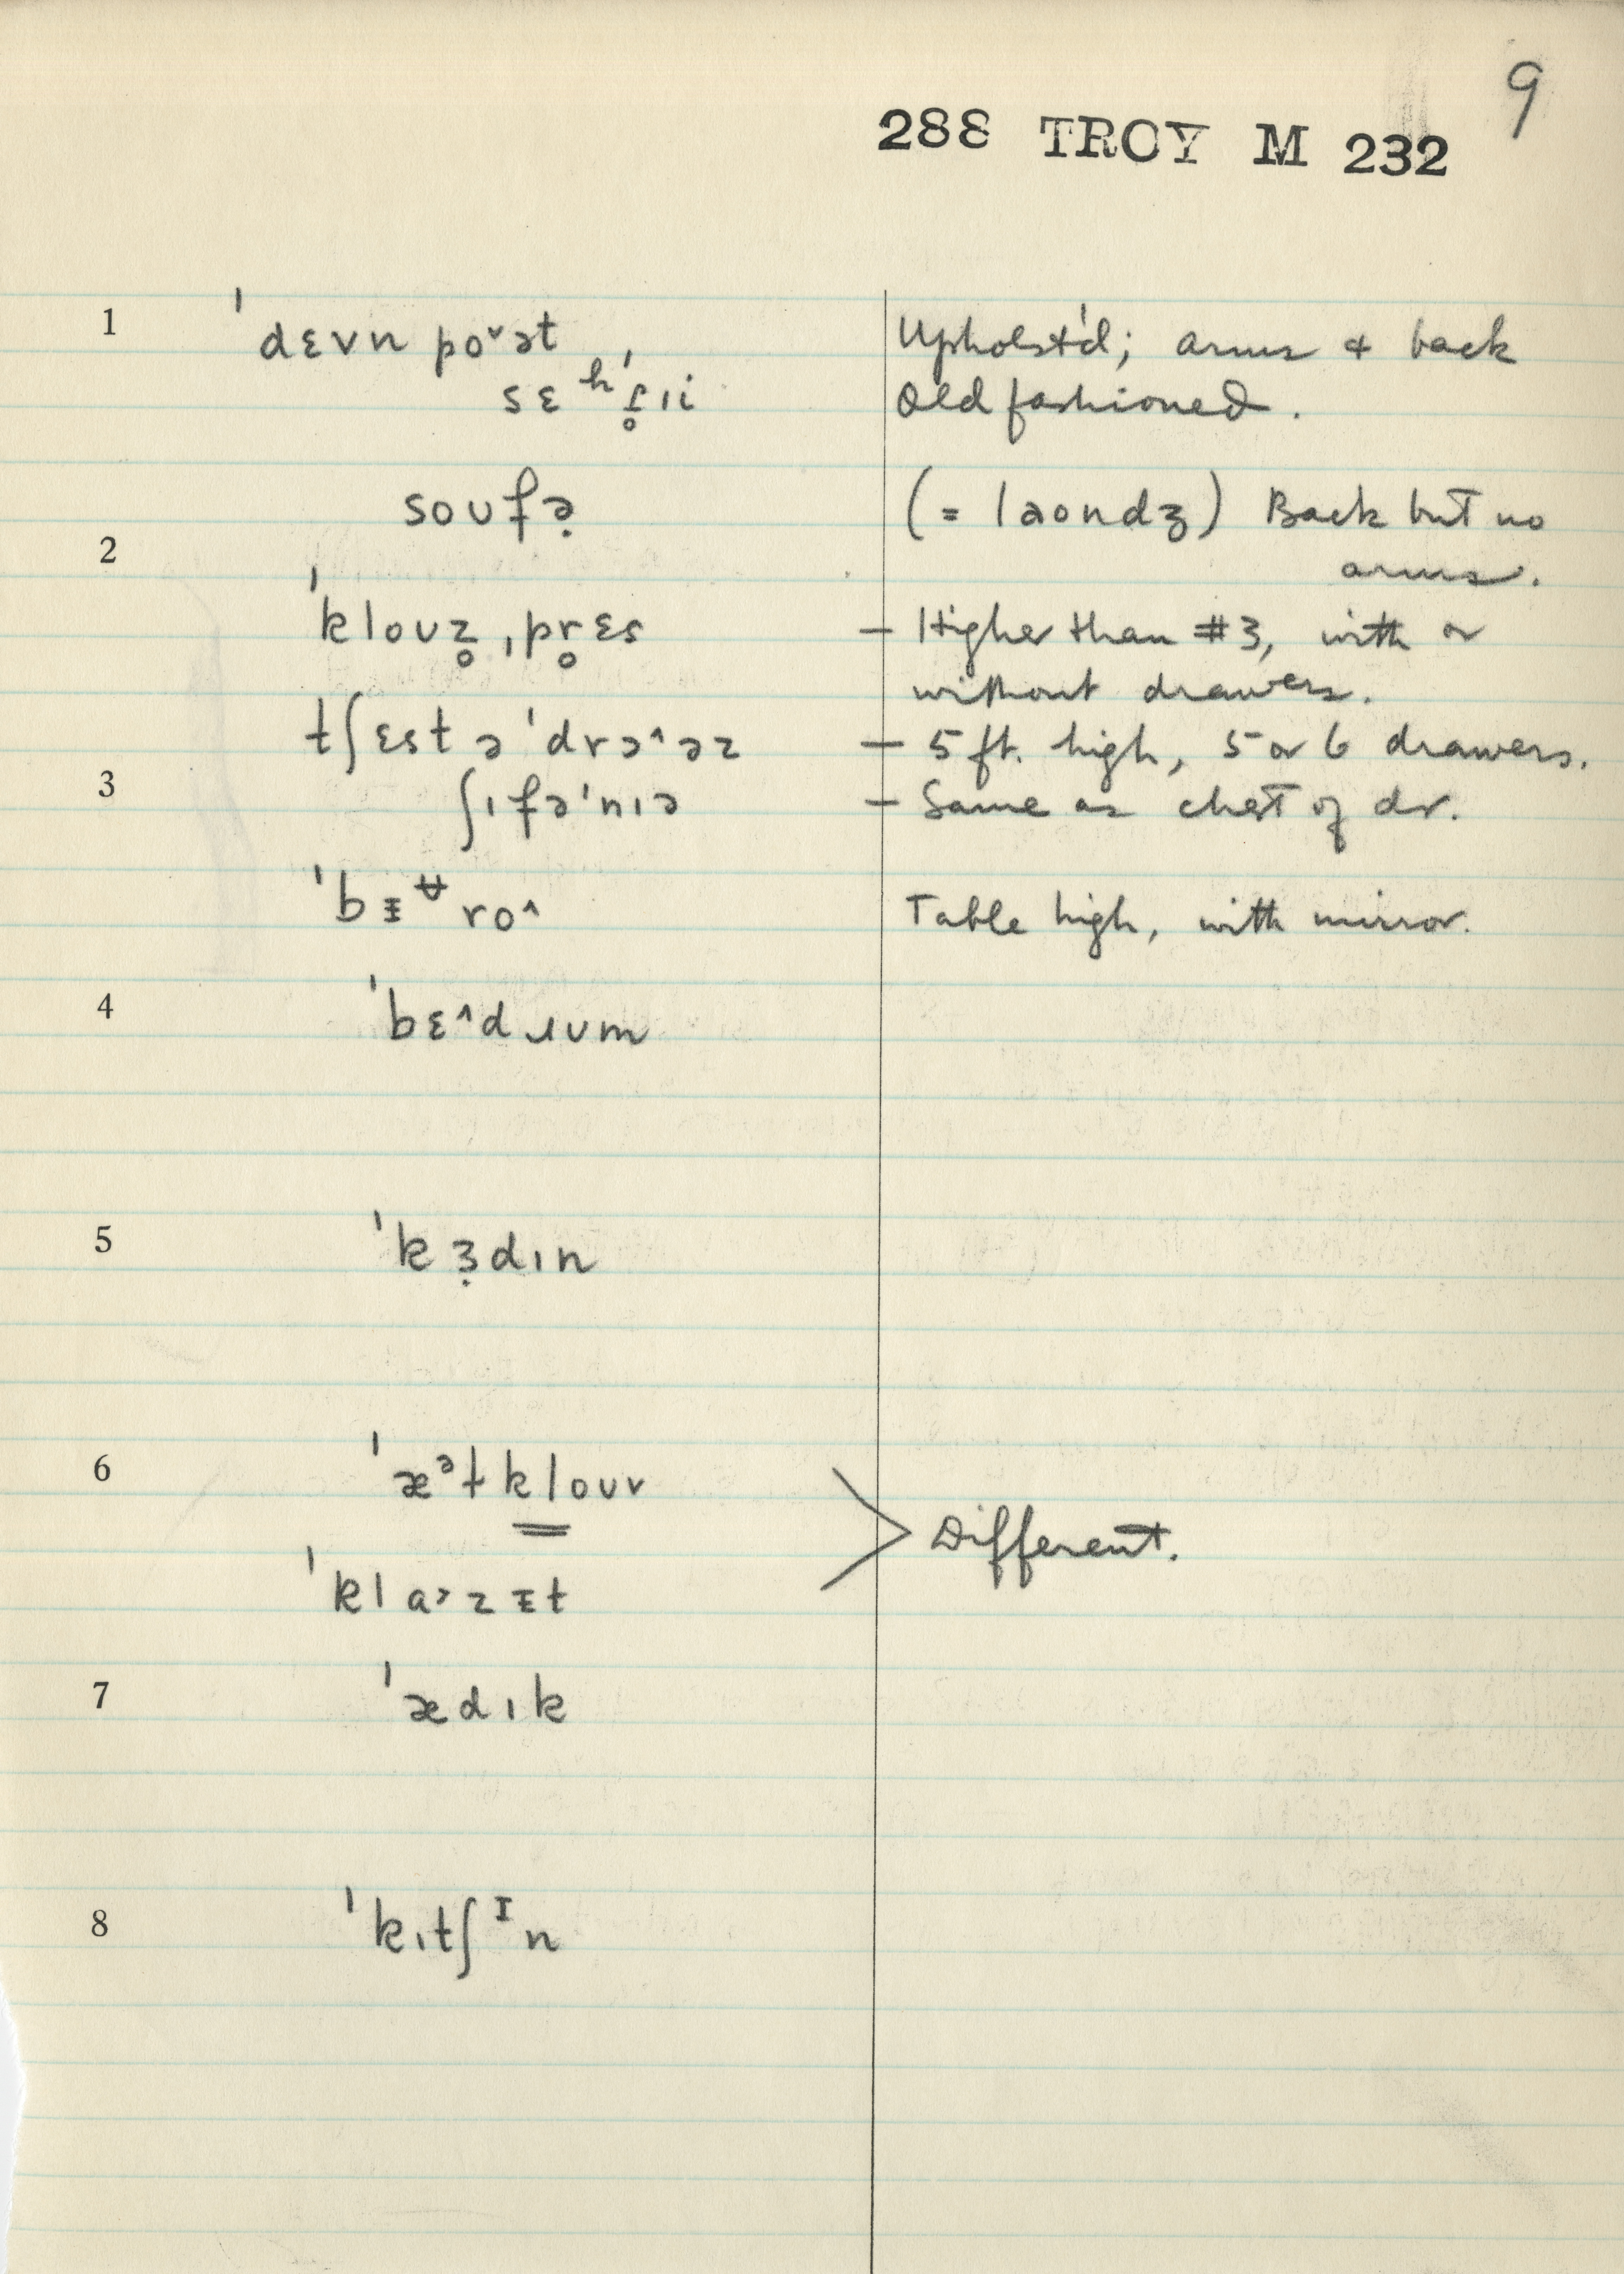 9
288 TROY M 232
1 ˈdɛvn poˇət Upholst'd; arms & back
sɛʰˈɾ̥ɪi Old fashioned.
soufə̣ (= laondʒ) Back but no
2 arms.
ˈkloʊz̥ ˌpr̥ɛs – Higher than #3, with or
without drawers.
tʃɛst ə ˈdrɔ^əz – 5 ft. high, 5 or 6 drawers.
3 ʃɪfəˈnɪə – Same as chest of dr.
ˈbɪ̵ᶶ̵ro^ Table high, with mirror.
4 ˈbɛ^dɹʊm
5 ˈkɜ̣dɪn
6 ˈæᵊtkloʊv Different.
ˈklɑ˃zɪ̵t
7 ˈædɪk
8 ˈkɪtʃᶦn